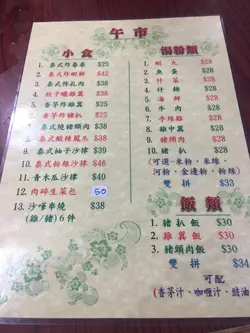 午市
小食
1. 泰式炸春卷 $25
2. 泰式炸蝦餅 $42
3. 泰式炸扎肉 $38
4. 餃子雞翼 $38
5. 香茅炸雞翼 $35
6. 香茅炸豬扒 $35
7. 泰式燒豬頸肉 $38
8. 泰式酸辣鳳爪 $38
9. 泰式柚子沙律 $39
10. 泰式粉絲沙律 $36
11. 青木瓜沙律 $38
12. 肉碎生菜包 50
13. 沙嗲串燒 $38
(雞/豬)6件
湯粉類
1. 蝦丸 $28
2. 魚蛋 $28
3. 什菜 $28
4. 什錦 $28
5. 海鮮 $28
6. 牛肉 $28
7. 手絲雞 $28
8. 雞中翼 $28
9. 豬頸肉 $28
10. 豬扒 $28
(可選-米粉、米線、
河粉、金邊粉、粉絲)
雙拼 $33
飯類
1. 豬扒飯 $30
2. 雞翼飯 $30
3. 豬頸肉飯 $30
雙拼 $34
可配
(香茅汁、咖喱汁、豉油